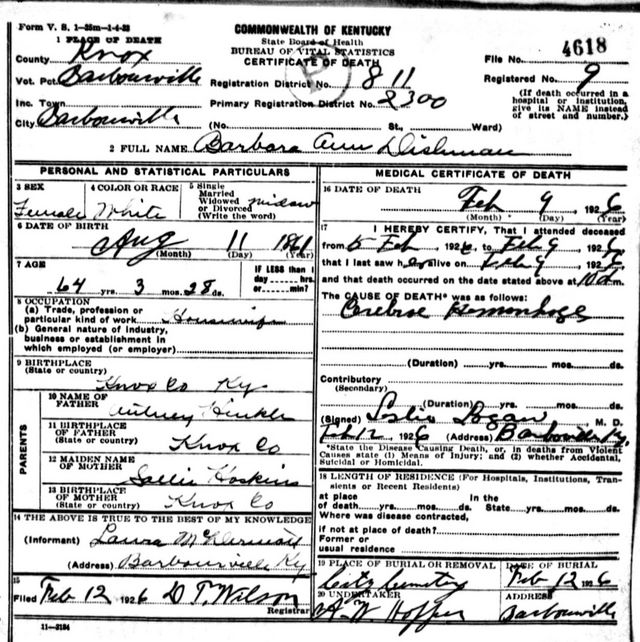 Form V. S. 1-35m-1-4-23
1 PLACE OF DEATH
COMMONWEALTH OF KENTUCKY
State Board of Health
BUREAU OF VITAL STATISTICS
CERTIFICATE OF DEATH
File No. 4618
Registered No. 9
(If death occurred in a hospital or institution, give its NAME instead of street and number.)
County Knox
Vot. Pct. Barbourville
Registration District No. 811
Inc. Town
Primary Registration District No. 2300
City Barbourville (No. St., Ward)
2 FULL NAME Barbara Ann Dishman
PERSONAL AND STATISTICAL PARTICULARS
3 SEX
Female
4 COLOR OR RACE
White
5 Single
Married
Widowed
or Divorced
(Write the word)
widow
6 DATE OF BIRTH
Aug 11 1861
(Month) (Day) (Year)
7 AGE
64 yrs. 3 mos. 28 ds.
IF LESS than 1
day hrs.
or min.?
8 OCCUPATION
(a) Trade, profession or
particular kind of work Housewife
(b) General nature of industry,
business or establishment in
which employed (or employer)
9 BIRTHPLACE
(State or country)
Knox Co Ky
PARENTS
10 NAME OF
FATHER
Hinkle
11 BIRTHPLACE
OF FATHER
(State or country)
Knox Co
12 MAIDEN NAME
OF MOTHER
Sallie Hoskins
13 BIRTHPLACE
OF MOTHER
(State or country)
Knox Co
14 THE ABOVE IS TRUE TO THE BEST OF MY KNOWLEDGE
(Informant) Laura
(Address) Barbourville Ky
15
Filed Feb 12 1926 D T. Wilson
Registrar
11-3184
MEDICAL CERTIFICATE OF DEATH
16 DATE OF DEATH
Feb 9 1926
(Month) (Day) (Year)
17 I HEREBY CERTIFY, That I attended deceased
from 5 Feb 1926, to Feb 9 1926
that I last saw her alive on Feb 9 1926
and that death occurred on the date stated above at 10 m.
The CAUSE OF DEATH* was as follows:
Cerebral Hemorrhage
(Duration) yrs. mos. ds.
Contributory
(Secondary)
(Duration) yrs. mos. ds.
(Signed) Leslie Logan M. D.
Feb 12 1926 (Address) Barbourville Ky
*State the Disease Causing Death, or, in deaths from Violent
Causes state (1) Means of Injury; and (2) whether Accidental,
Suicidal or Homicidal.
18 LENGTH OF RESIDENCE (For Hospitals, Institutions, Transients or Recent Residents)
at place In the
of death yrs. mos. ds. State yrs. mos. ds.
Where was disease contracted,
if not at place of death?
Former or
usual residence
19 PLACE OF BURIAL OR REMOVAL
City Cemetery
DATE OF BURIAL
Feb 12 1926
20 UNDERTAKER
W Hopper
ADDRESS
Barbourville